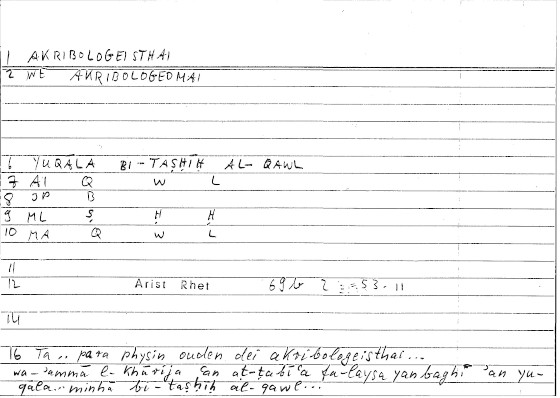 1 AKRIBOLOGEISTHAI
2 WE AKRIBOLOGEOMAI
6 YUQĀLA BI-TAṢḤĪḤ AL-QAWL
7 AI Q W L
8 JP B
9 ML Ṣ Ḥ Ḥ
10 MA Q W L
11
12 Arist Rhet 69b 2 = 53.11
14
16 Ta .. para physin ouden dei akribologeisthai...
wa-'ammā l-khārija ʿan aṭ-ṭabīʿa fa-laysa yanbaghī 'an yu-
qāla.. minhā bi-taṣḥīḥ al-qawl...